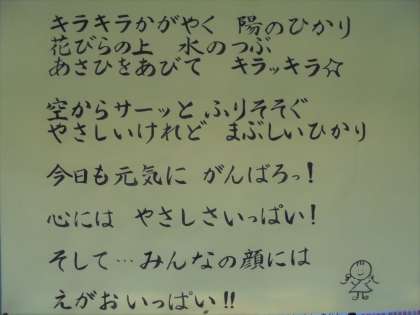 キラキラかがやく 陽のひかり
花びらの上 水のつぶ
あさひをあびて キラッキラ☆
空からサーッと ふりそそぐ
やさしいけれど まぶしいひかり
今日も元気に がんばろっ!
心には やさしさいっぱい!
そして…みんなの顔には
えがおいっぱい!!